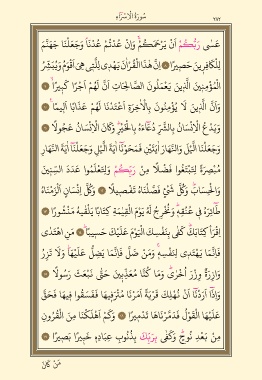 سُورَةُ الْاِسْرَاءِ
٢٨٢
عَسٰى رَبُّكُمْ اَنْ يَرْحَمَكُمْ وَاِنْ عُدْتُمْ عُدْنَا وَجَعَلْنَا جَهَنَّمَ
لِلْكَافِر۪ينَ حَص۪يرًا اِنَّ هٰذَا الْقُرْاٰنَ يَهْد۪ي لِلَّت۪ي هِيَ اَقْوَمُ وَيُبَشِّرُ
الْمُؤْمِن۪ينَ الَّذ۪ينَ يَعْمَلُونَ الصَّالِحَاتِ اَنَّ لَهُمْ اَجْرًا كَب۪يرًا
وَاَنَّ الَّذ۪ينَ لَا يُؤْمِنُونَ بِالْاٰخِرَةِ اَعْتَدْنَا لَهُمْ عَذَابًا اَل۪يمًا
وَيَدْعُ الْاِنْسَانُ بِالشَّرِّ دُعَٓاءَهُ بِالْخَيْرِ وَكَانَ الْاِنْسَانُ عَجُولًا
وَجَعَلْنَا الَّيْلَ وَالنَّهَارَ اٰيَتَيْنِ فَمَحَوْنَٓا اٰيَةَ الَّيْلِ وَجَعَلْنَٓا اٰيَةَ النَّهَارِ
مُبْصِرَةً لِتَبْتَغُوا فَضْلًا مِنْ رَبِّكُمْ وَلِتَعْلَمُوا عَدَدَ السِّن۪ينَ
وَالْحِسَابَ وَكُلَّ شَيْءٍ فَصَّلْنَاهُ تَفْص۪يلًا وَكُلَّ اِنْسَانٍ اَلْزَمْنَاهُ
طَٓائِرَهُ ف۪ي عُنُقِه۪ وَنُخْرِجُ لَهُ يَوْمَ الْقِيٰمَةِ كِتَابًا يَلْقٰيهُ مَنْشُورًا
اِقْرَأْ كِتَابَكَ كَفٰى بِنَفْسِكَ الْيَوْمَ عَلَيْكَ حَس۪يبًا مَنِ اهْتَدٰى
فَاِنَّمَا يَهْتَد۪ي لِنَفْسِه۪ وَمَنْ ضَلَّ فَاِنَّمَا يَضِلُّ عَلَيْهَا وَلَا تَزِرُ
وَازِرَةٌ وِزْرَ اُخْرٰى وَمَا كُنَّا مُعَذِّب۪ينَ حَتّٰى نَبْعَثَ رَسُولًا
وَاِذَٓا اَرَدْنَٓا اَنْ نُهْلِكَ قَرْيَةً اَمَرْنَا مُتْرَف۪يهَا فَفَسَقُوا ف۪يهَا فَحَقَّ
عَلَيْهَا الْقَوْلُ فَدَمَّرْنَاهَا تَدْم۪يرًا وَكَمْ اَهْلَكْنَا مِنَ الْقُرُونِ
مِنْ بَعْدِ نُوحٍ وَكَفٰى بِرَبِّكَ بِذُنُوبِ عِبَادِه۪ خَب۪يرًا بَص۪يرًا
مَنْ كَانَ